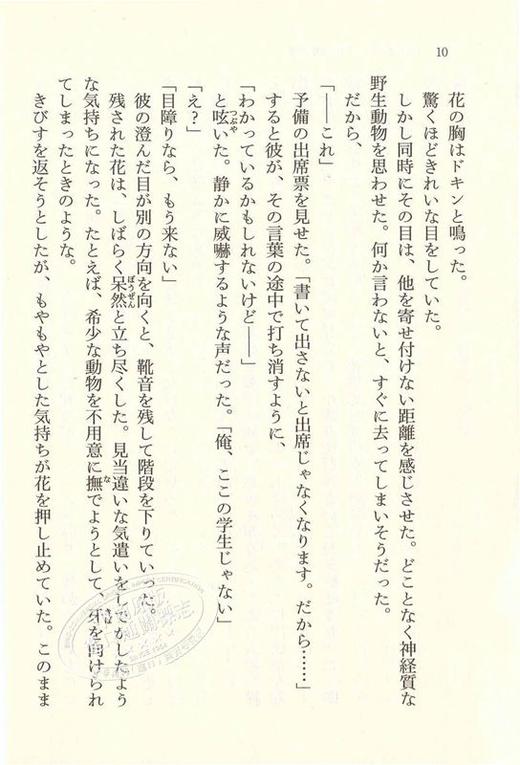 10
花の胸はドキンと鳴った。
驚くほどきれいな目をしていた。
しかし同時にその目は、他を寄せ付けない距離を感じさせた。どことなく神経質な
野生動物を思わせた。何か言わないと、すぐに去ってしまいそうだった。
だから、
「――これ」
予備の出席票を見せた。「書いて出さないと出席じゃなくなります。だから……」
すると彼が、その言葉の途中で打ち消すように、
「わかっているかもしれないけど――」
と呟いた。静かに威嚇するような声だった。「俺、ここの学生じゃない」
「え？」
「目障りなら、もう来ない」
彼の澄んだ目が別の方向を向くと、靴音を残して階段を下りていった。
残された花は、しばらく呆然と立ち尽くした。見当違いな気遣いをしでかしたよう
な気持ちになった。たとえば、希少な動物を不用意に撫でようとして、牙を向けられ
てしまったときのような。
きびすを返そうとしたが、もやもやとした気持ちが花を押し止めていた。このまま